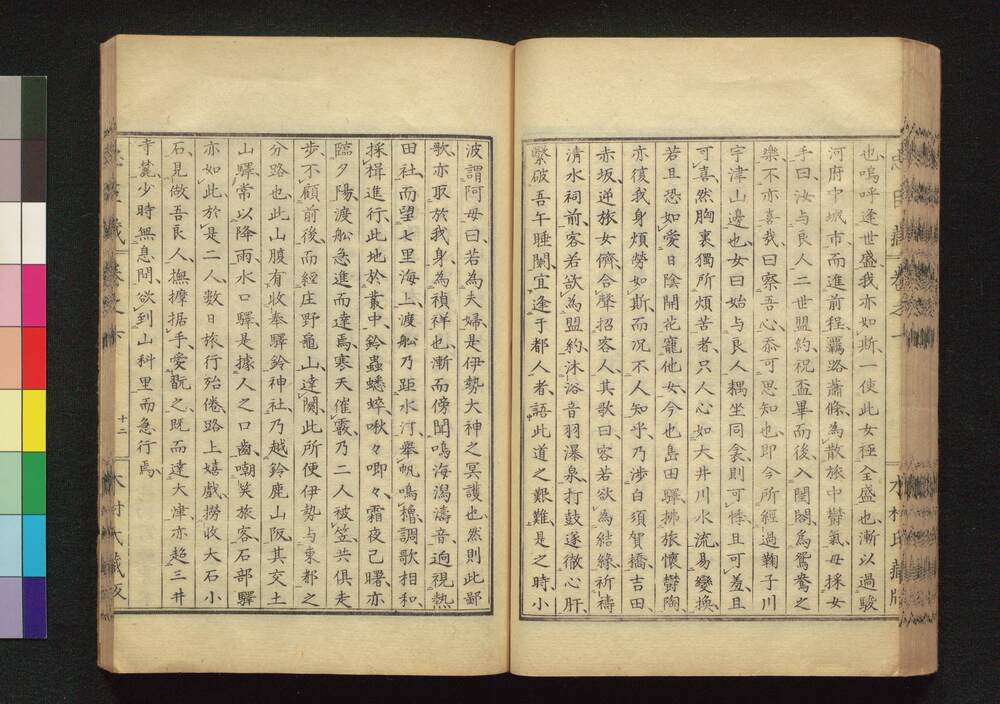 也嗚呼逢世盛我亦如斯一使此女極全盛也漸以過駿
河府中城市而進前程羇路蕭條為散旅中欝氣母採女
手曰汝与良人二世盟約祝盃畢而後入閨閤為鴛鴦之
樂不亦喜哉曰察吾心忝可思知也即今所經過鞠子川
宇津山邊也女曰始与良人耦坐同衾則可悸且可羞且
可喜然胸裏獨所煩苦者只人心如大井川水流易變換
若且恐如愛日陰開花寵他女今也島田驛拂旅懷欝陶
亦復我身煩勞如斯而况不人知乎乃渉白須賀橋吉田
赤坂逆旅女儕合聲招客人其歌曰客若欲為結縁祈禱
清水祠前客若欲為盟約沐浴音羽瀑泉打鼓遂徹心肝
繄破吾午睡闌宜逢于都人者語此道之艱難是之時小
波謂阿母曰若為夫婦是伊勢大神之冥護也然則此鄙
歌亦取於我身為禎祥也漸而傍聞鳴海潟濤音逈視熱
田社而望七里海上渡舩乃距水汀舉帆鳴櫓調歌相和
採楫進行此地於叢中鈴蟲蟋蟀啾々唧々霜夜已曙亦
臨夕陽渡舩急進而達焉寒天催霰乃二人被笠共俱走
歩不顧前後而經庄野龜山達関此所便伊勢与東都之
分路也此山腹有收奉驛鈴神社乃越鈴鹿山阪其交土
山驛常以降雨水口驛是據人之口齒嘲笑旅客石部驛
亦如此於是二人數日旅行殆倦路上嬉戲撈收大石小
石見做吾良人撫摩据手愛翫之既而達大津亦超三井
寺麓少時無息閒欲到山科里而急行焉
十二